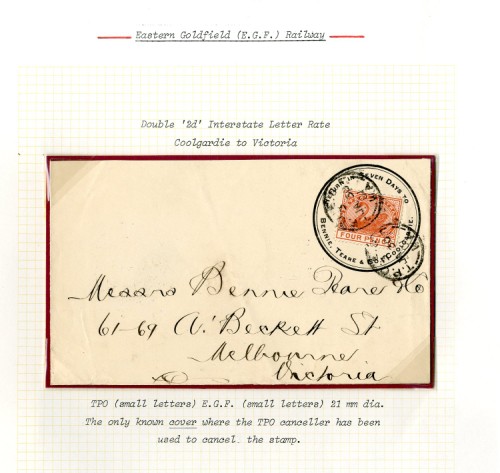 Eastern Goldfield (E.G.F.) Railway
Double '2d' Interstate Letter Rate
Coolgardie to Victoria
RETURN IN SEVEN DAYS TO
BENNIE, TEARE & CO., COOLGARDIE.
FOUR PENCE
T.P.O
Messrs Bennie Teare & Co
61-69 A'Beckett St
Melbourne
Victoria
TPO (small letters) E.G.F. (small letters) 21 mm dia.
The only known cover where the TPO canceller has been
used to cancel the stamp.